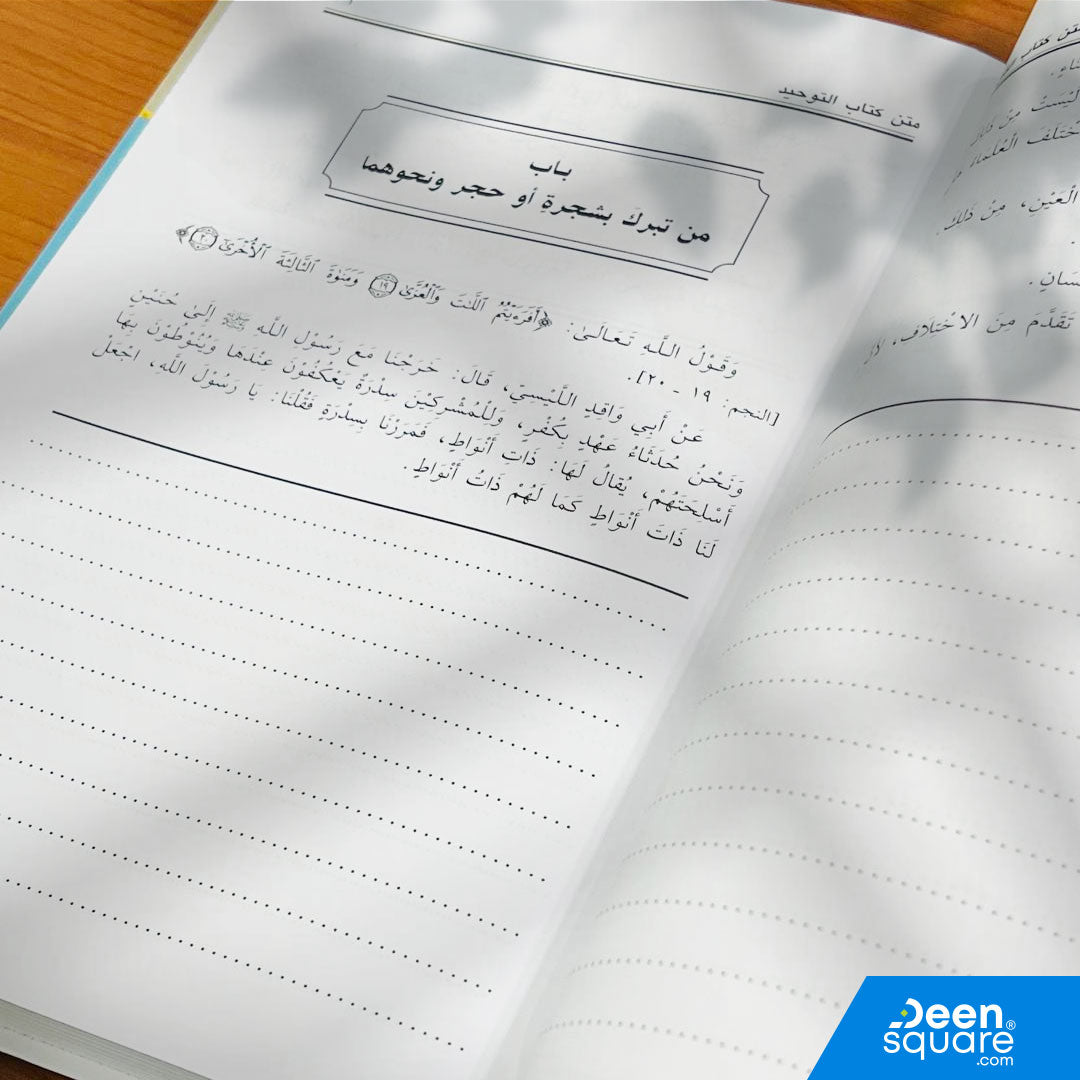 متن كتاب التوحيد
باب
من تبركَ بشجرةٍ أو حجر ونحوهما
وَقَوْلُ اللَّهِ تَعَالَىٰ: ﴿أَفَرَءَيْتُمُ ٱللَّٰتَ وَٱلْعُزَّىٰ ١٩ وَمَنَوٰةَ ٱلثَّالِثَةَ ٱلْأُخْرَىٰٓ ٢٠﴾
[النجم: ١٩ - ٢٠].
عَنْ أَبِي وَاقِدٍ اللَّيْسِيِّ، قَالَ: خَرَجْنَا مَعَ رَسُوْلِ اللَّهِ ﷺ إِلَىٰ حُنَيْنٍ
وَنَحْنُ حُدَثَاءُ عَهْدٍ بِكُفْرٍ، وَلِلْمُشْرِكِيْنَ سِدْرَةٌ يَعْكُفُوْنَ عِنْدَهَا وَيُنَوِّطُوْنَ بِهَا
أَسْلِحَتَهُمْ، يُقالُ لَهَا: ذَاتِ أَنْوَاطٍ، فَمَرَرْنَا بِسِدْرَةٍ فَقُلْنَا: يَا رَسُوْلَ اللَّهِ، اجْعَلْ
لَنَا ذَاتَ أَنْوَاطٍ كَمَا لَهُمْ ذَاتُ أَنْوَاطٍ.
متن كتاب
أَلَيْسَتْ مِنْ ذَلِكَ
الْعَيْنِ، مِنْ ذَلِكَ.
تَقَدَّمَ مِنَ الاخْتِلَافِ،
Deen
square®
.com